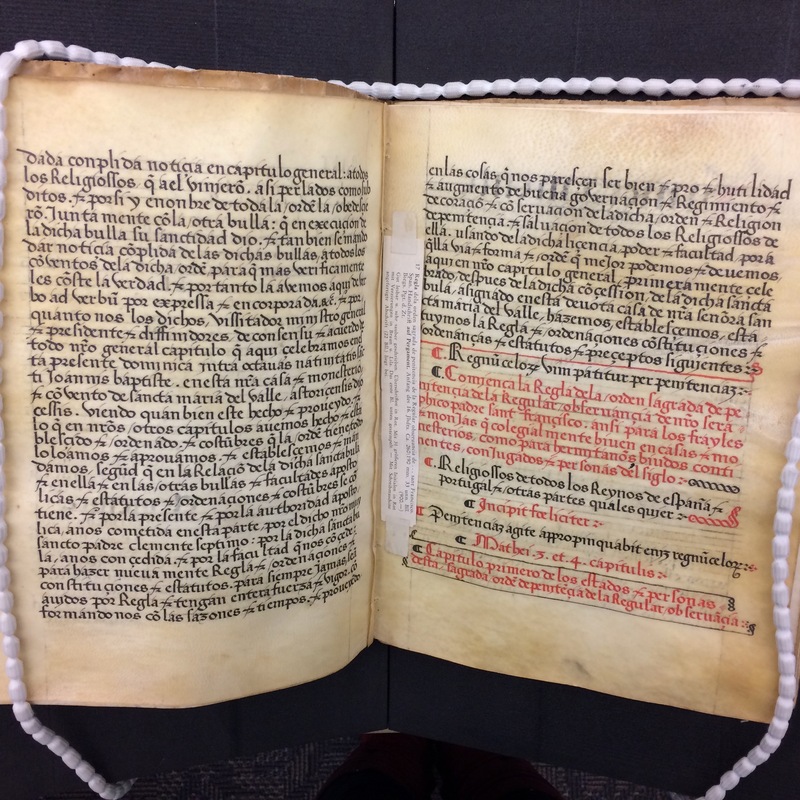 dada conplida noticia en capitulo general: a todos
los Religiossos q̃ a el vinierõ. asi perlados como sub
ditos. ⁊ por si y en onbre de toda la / ordẽ la / obedesçie
rõ. Junta mente cõ la / otra bulla: q̃ en execuçiõ de
la dicha bulla su sanctidad dio. ⁊ tanbien se mando
dar noticia cõplida de las dichas bullas, a todos los
cõventos de la dicha ordẽ para q̃ mas verifica mente
les cõste la verdad. ⁊ por tanto la avemos aqui de ver
bo ad verbũ por expressa ⁊ en corporada. &. ⁊ por
quanto nos los dichos, Vissitador ministro general
⁊ presidente ⁊ diffinidores, de consensu ⁊ acuerdo ⁊
todo nr̃o general capitulo q̃ aqui celebramos en es
ta presente dominica intra octauas natiuitatis sãc
ti Joannis baptiste. en esta nr̃a casa ⁊ monesterio,
⁊ cõ vento de sancta maria del valle. astoricensis dio
cessis. viendo quan bien este hecho ⁊ proueydo. ⁊
lo q̃ en nr̃os / otros capitulos auemos hecho ⁊ esta
blesçido ⁊ / ordenado. ⁊ costũbres q̃ la / ordẽ tiene todo
lo loamos ⁊ aprouamos. ⁊ establescemos ⁊ man
damos, segũd q̃ en la Relaciõ de la dicha sancta bulla
⁊ en ella ⁊ en las / otras bullas ⁊ facultades aposto
licas ⁊ estatutos ⁊ / ordenaçiones ⁊ costũbres se cõ
tiene. ⁊ por la presente ⁊ por la authoridad aposto
lica, a nos cometida en esta parte, por el dicho nr̃o muy
sancto padre clemente septimo: por la dicha sancta bu
la, a nos con çedida. ⁊ por la facultad q̃ nos cõçede:
para hazer nueua mente Regla ⁊ / ordenaçiones ⁊
constituçiones ⁊ estatutos. para siempre Jamas, seã
auidos por Regla ⁊ tengan entera fuerza ⁊ vigor. cõ
formando nos cõ las sazones ⁊ tiempos. ⁊ proueydo
en las cosas, q̃ nos paresçen ser bien ⁊ pro ⁊ huti lidad
⁊ augmento de buena governaçion ⁊ Regimiento ⁊
de coraçõ ⁊ cõ servaçion de la dicha / orden ⁊ Religion
de penitençia. ⁊ saluaçion de todos los Religiossos de
ella. usando de la dicha liçençia poder ⁊ facultad. por a
q̃lla via ⁊ forma ⁊ / ordẽ q̃ mejor podemos ⁊ deuemos,
aqui en nr̃o capitulo general, primera mente cele
brado, despues de la dicha cõçession, de la dicha sancta
bula, asignado en esta deuota casa de nr̃a señora san
cta maria del Valle, hazemos, estable scemos, esta
tuymos la Regla ⁊ / ordenaçiones cõstituçiones ⁊
ordenanças ⁊ estatutos ⁊ preçeptos siguientes:
¶. Regnũ celoȝ Vim patitur per penitenciaȝ:
¶. Comiença la Regla de la / orden sagrada de pe
nitençia de la Regular, obseruançia de nr̃o sera
phico padre sant françisco. ansi para los frayles
⁊ monjas q̃ colegial mente biuen en casas ⁊ mo
nesterios, como para hermitanos biudos conti
nentes, conjugados ⁊ personas del siglo:
¶. Religiossos de todos los Reynos de españa ⁊
portugal ⁊ / otras partes quales quier:
¶ Incipit fœliciter:
¶ Penitenciaȝ agite appropinquabit eniȝ regnũ celoȝ:
¶ Mathei. 3. et. 4. capitulis:
¶ Capitulo primero de los estados ⁊ personas
desta / sagrada, ordẽ de penitẽçia de la Regular, observãçia: